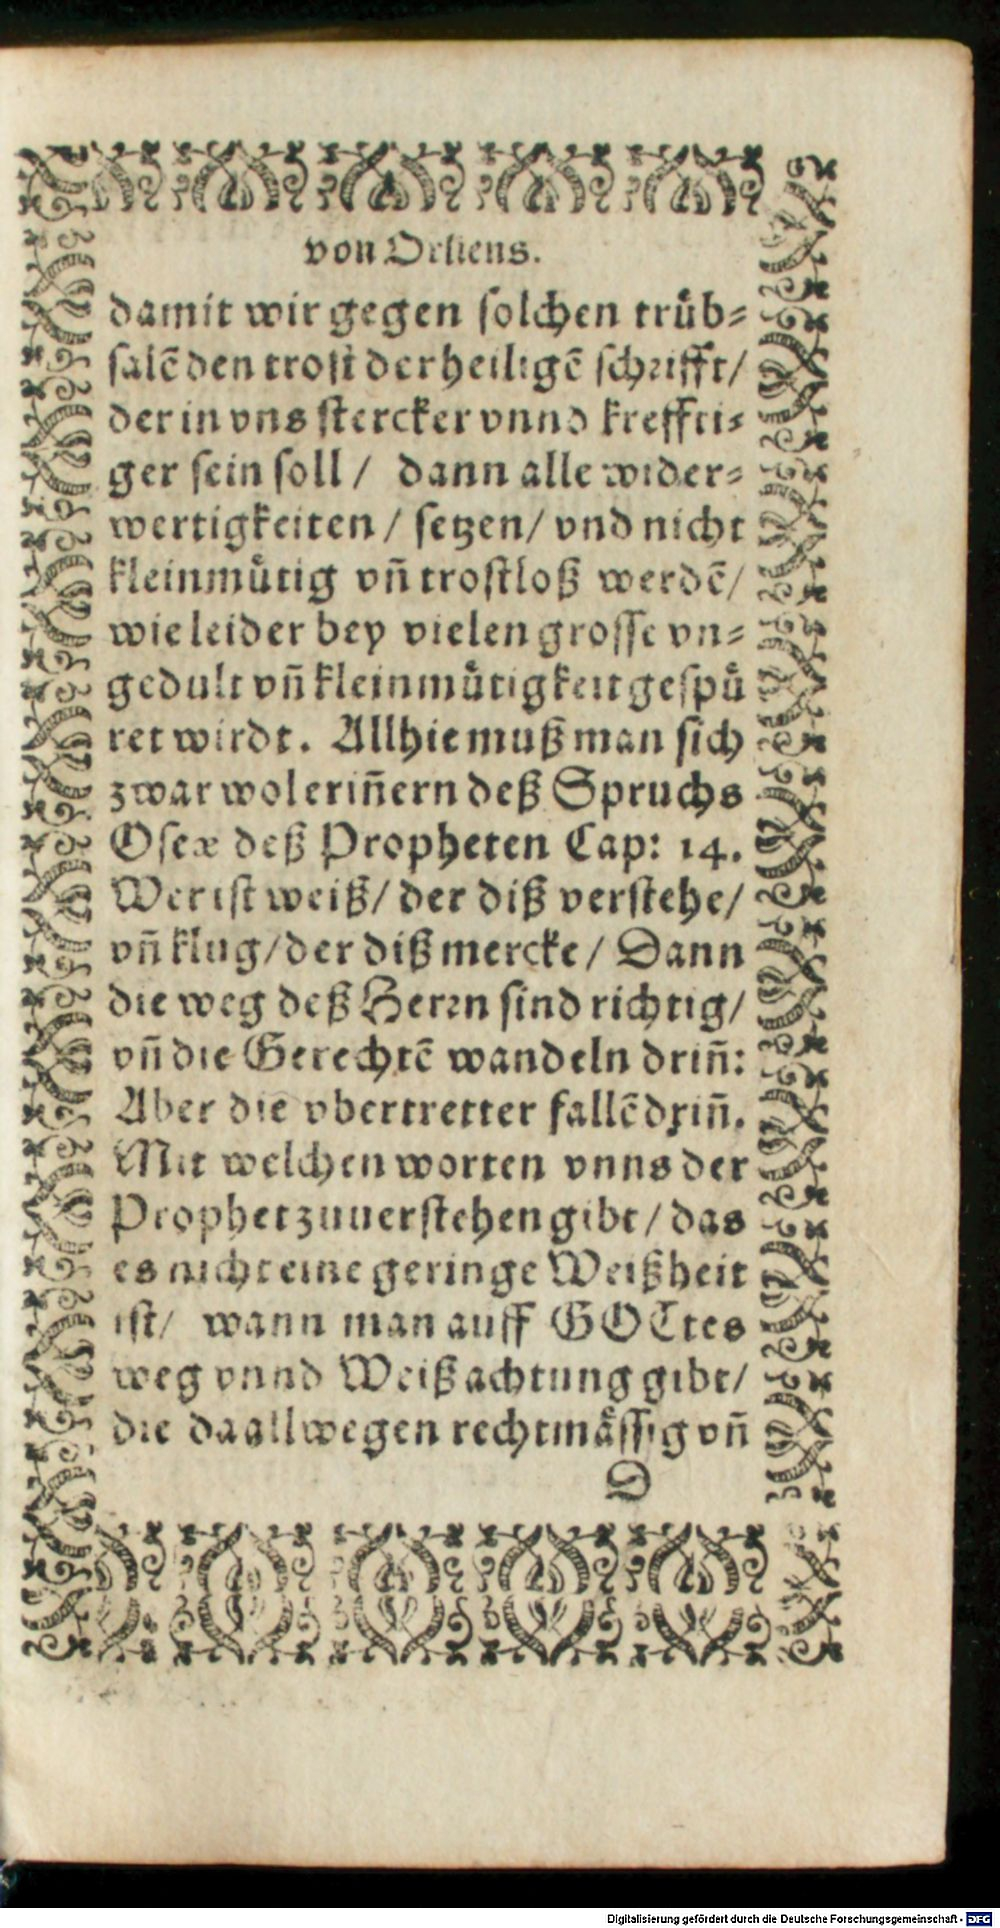 von Orliens.
damit wir gegen solchen trüb⸗
salē den trost der heiligē schrifft/
der in vns stercker vnnd kreffti⸗
ger sein soll / dann alle wider⸗
wertigkeiten / setzen/ vnd nicht
kleinmütig vn̄ trostloß werdē/
wie leider bey vielen grosse vn⸗
gedult vn̄ kleinmütigkeit gespü
ret wirdt. Allhie muß man sich
zwar wol erin̄ern deß Spruchs
Oseæ deß Propheten Cap: 14.
Wer ist weiß/ der diß verstehe/
vn̄ klug/ der diß mercke/ Dann
die weg deß Herrn sind richtig/
vn̄ die Gerechtē wandeln drin̄:
Aber die vbertretter fallē drin̄.
Mit welchen worten vnns der
Prophet zuuerstehen gibt/ das
es nicht eine geringe Weißheit
ist/ wann man auff GOTtes
weg vnnd Weiß achtung gibt/
die da allwegen rechtmässig vn̄
D
Digitalisierung gefördert durch die Deutsche Forschungsgemeinschaft - DFG